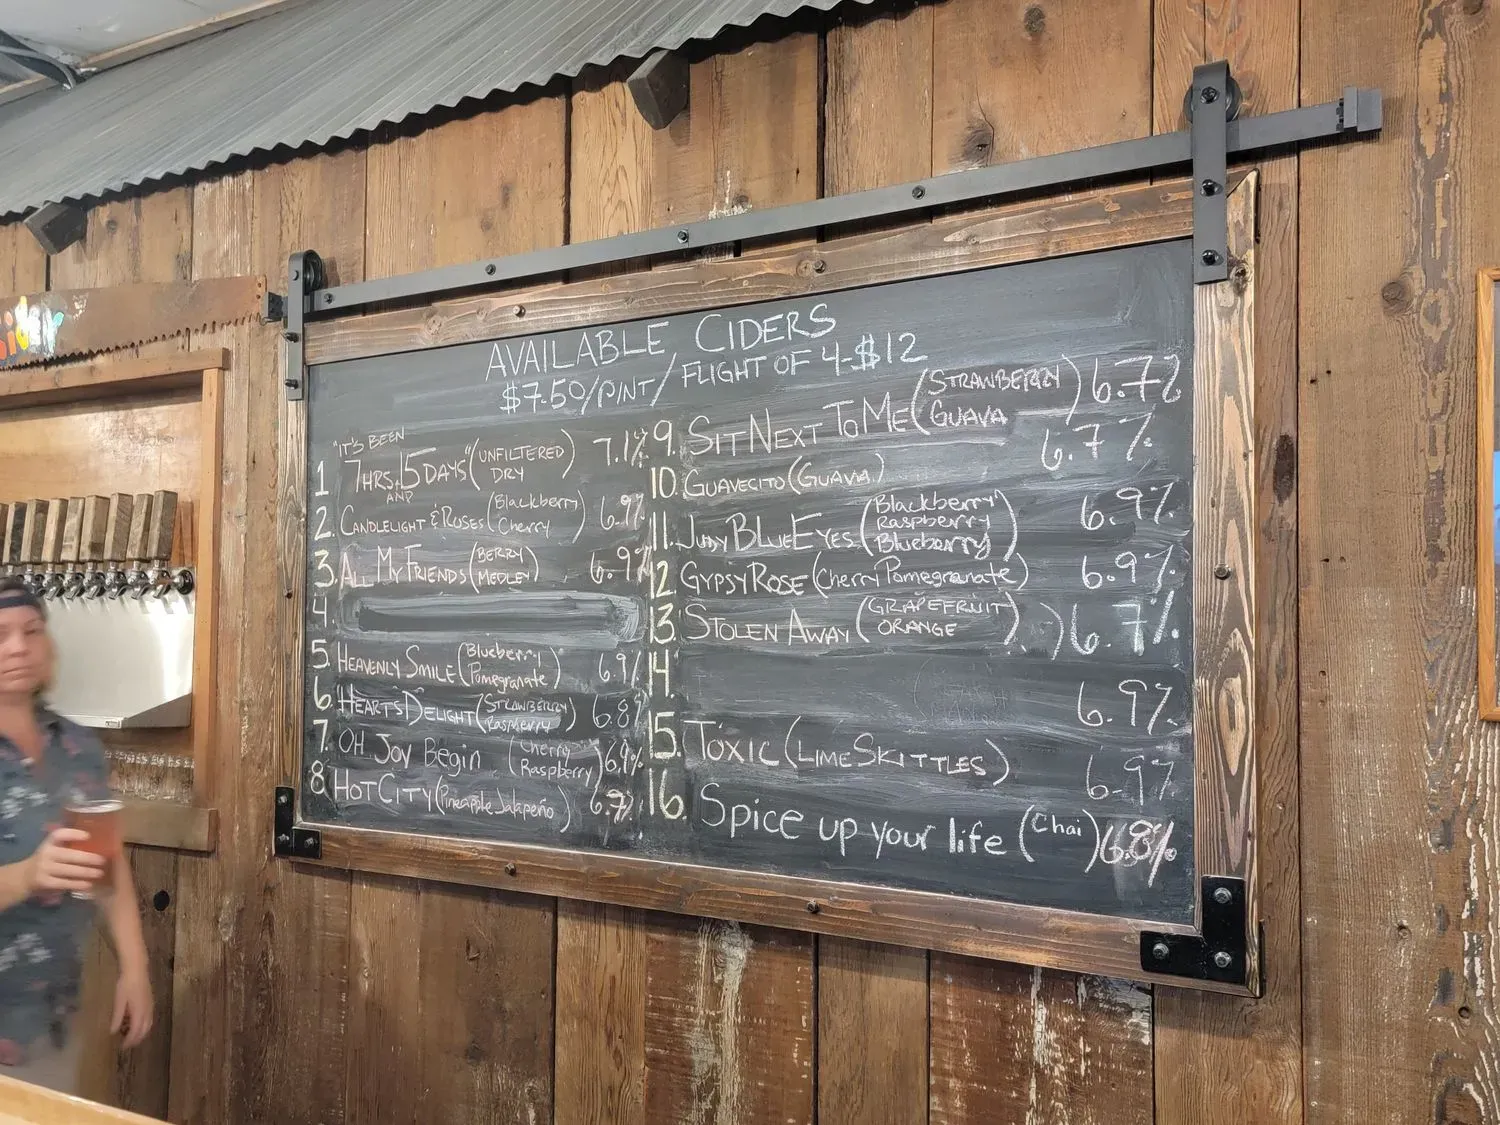 AVAILABLE CIDERS
$7.50/PINT/ FLIGHT OF 4-$12
"IT'S BEEN
1 7HRS, 15 DAYS" (UNFILTERED DRY) 7.1%
AND
2. CANDLELIGHT & ROSES (Blackberry Cherry) 6.9%
3. ALL MY FRIENDS (BERRY MEDLEY) 6.9%
4.
5. HEAVENLY SMILE (Blueberry Pomegranate) 6.9%
6. HEARTS DELIGHT (STRAWBERRY Raspberry) 6.8%
7. OH JOY Begin (Cherry Raspberry) 6.9%
8 HOT CITY (Pineapple Jalapeño) 6.9%
9. SIT NEXT TO ME (STRAWBERRY GUAVA) 6.7%
10. GUAVECITO (GUAVA) 6.7%
11. JUDY BLUE EYES (Blackberry Raspberry Blueberry) 6.9%
12 GYPSY ROSE (Cherry Pomegranate) 6.9%
13. STOLEN AWAY (GRAPEFRUIT ORANGE) 6.7%
14. 6.9%
15. TOXIC (LIME SKITTLES) 6.9%
16. Spice up your life (Chai) 6.8%